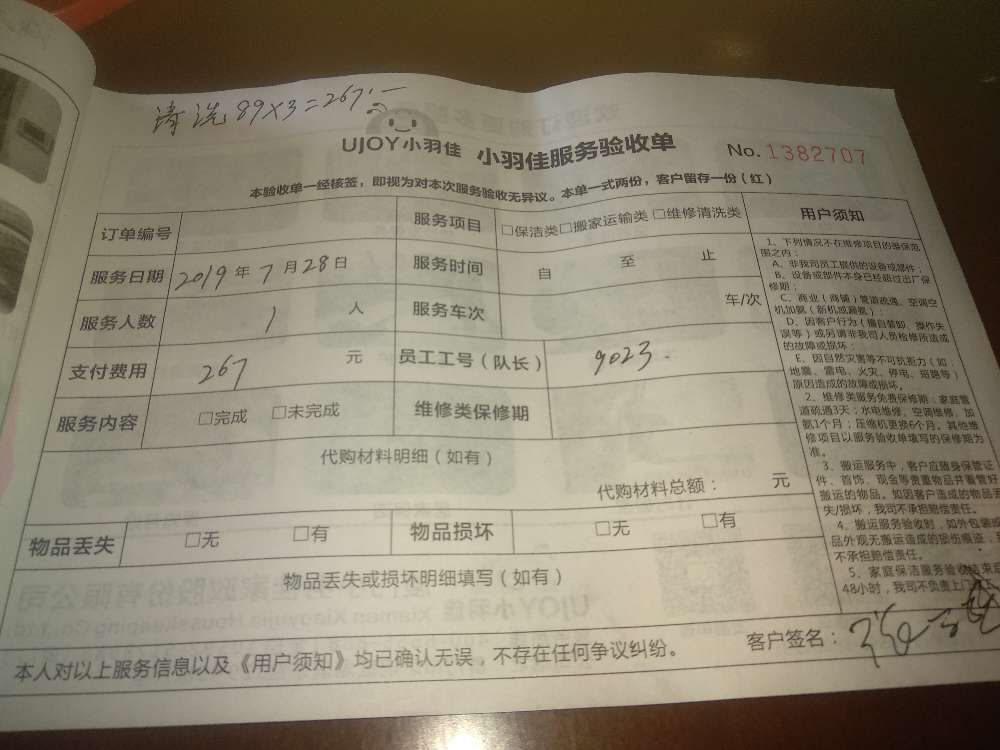 清洗 89×3=267.—
UJOY小羽佳 小羽佳服务验收单 No. 1382707
本验收单一经核签，即视为对本次服务验收无异议。本单一式两份，客户留存一份（红）
订单编号 服务项目 □保洁类□搬家运输类□维修清洗类
服务日期 2019年7月28日 服务时间 自 至 止
服务人数 1 人 服务车次 车/次
支付费用 267 元 员工工号（队长） 9023
服务内容 □完成 □未完成 维修类保修期
代购材料明细（如有）
代购材料总额： 元
物品丢失 □无 □有 物品损坏 □无 □有
物品丢失或损坏明细填写（如有）
本人对以上服务信息以及《用户须知》均已确认无误，不存在任何争议纠纷。
客户签名：
用户须知
1、下列情况不在维修项目的维保范
围之内：
A、非我司员工提供的设备或部件；
B、设备或部件本身已经超过出厂保
修期；
C、商业（商铺）管道疏通、空调空
机加氨（新机或漏氨）；
D、因客户行为（擅自装卸、操作失
误等）或另请非我司人员检修所造成
的故障或损坏；
E、因自然灾害等不可抗拒力（如：
地震、雷电、火灾、停电、短路等）
原因造成的故障或损坏。
2、维修类服务免费保修期：家庭管
道疏通3天；水电维修、空调维修、加
氨1个月；压缩机更换6个月。其他维
修项目以服务验收单填写的保修期为
准。
3、搬运服务中，客户应随身保管证
件、首饰、现金等贵重物品并看管好
搬运的物品。如因客户造成的物品丢
失/损坏，我司不承担赔偿责任。
4、搬运服务验收时，如外包装或
品外观无搬运造成的损伤痕迹，
不承担赔偿责任。
5、家庭保洁服务验收结束后
48小时，我司不负责上门